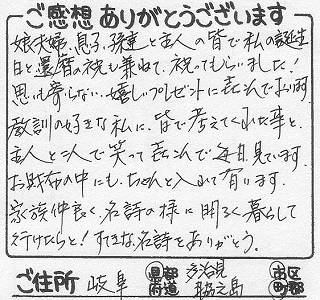 ご感想ありがとうございます
娘夫婦、息子、孫達と主人の皆で私の誕生
日と還暦の祝も兼ねて、祝ってもらいました!
思いも寄らない、嬉しいプレゼントに喜んでおります。
教訓の好きな私に、皆で考えてくれた事と、
主人と二人で笑って喜こんで毎日見ています。
お財布の中にも、ちゃんと入れて有ります。
家族仲良く、名詩の様に明るく暮らして
行けたらと!すてきな名詩をありがとう。
ご住所 岐阜 都道府県 多治見 市区
脇之島 郡町